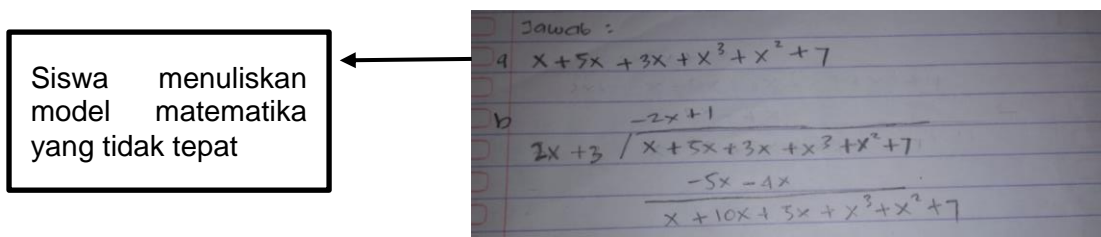 Siswa menuliskan
model matematika
yang tidak tepat
Jawab :
a x + 5x + 3x + x³ + x² + 7
b -2x + 1
2x + 3 / x + 5x + 3x + x³ + x² + 7
-5x - 4x
x + 10x + 3x + x³ + x² + 7